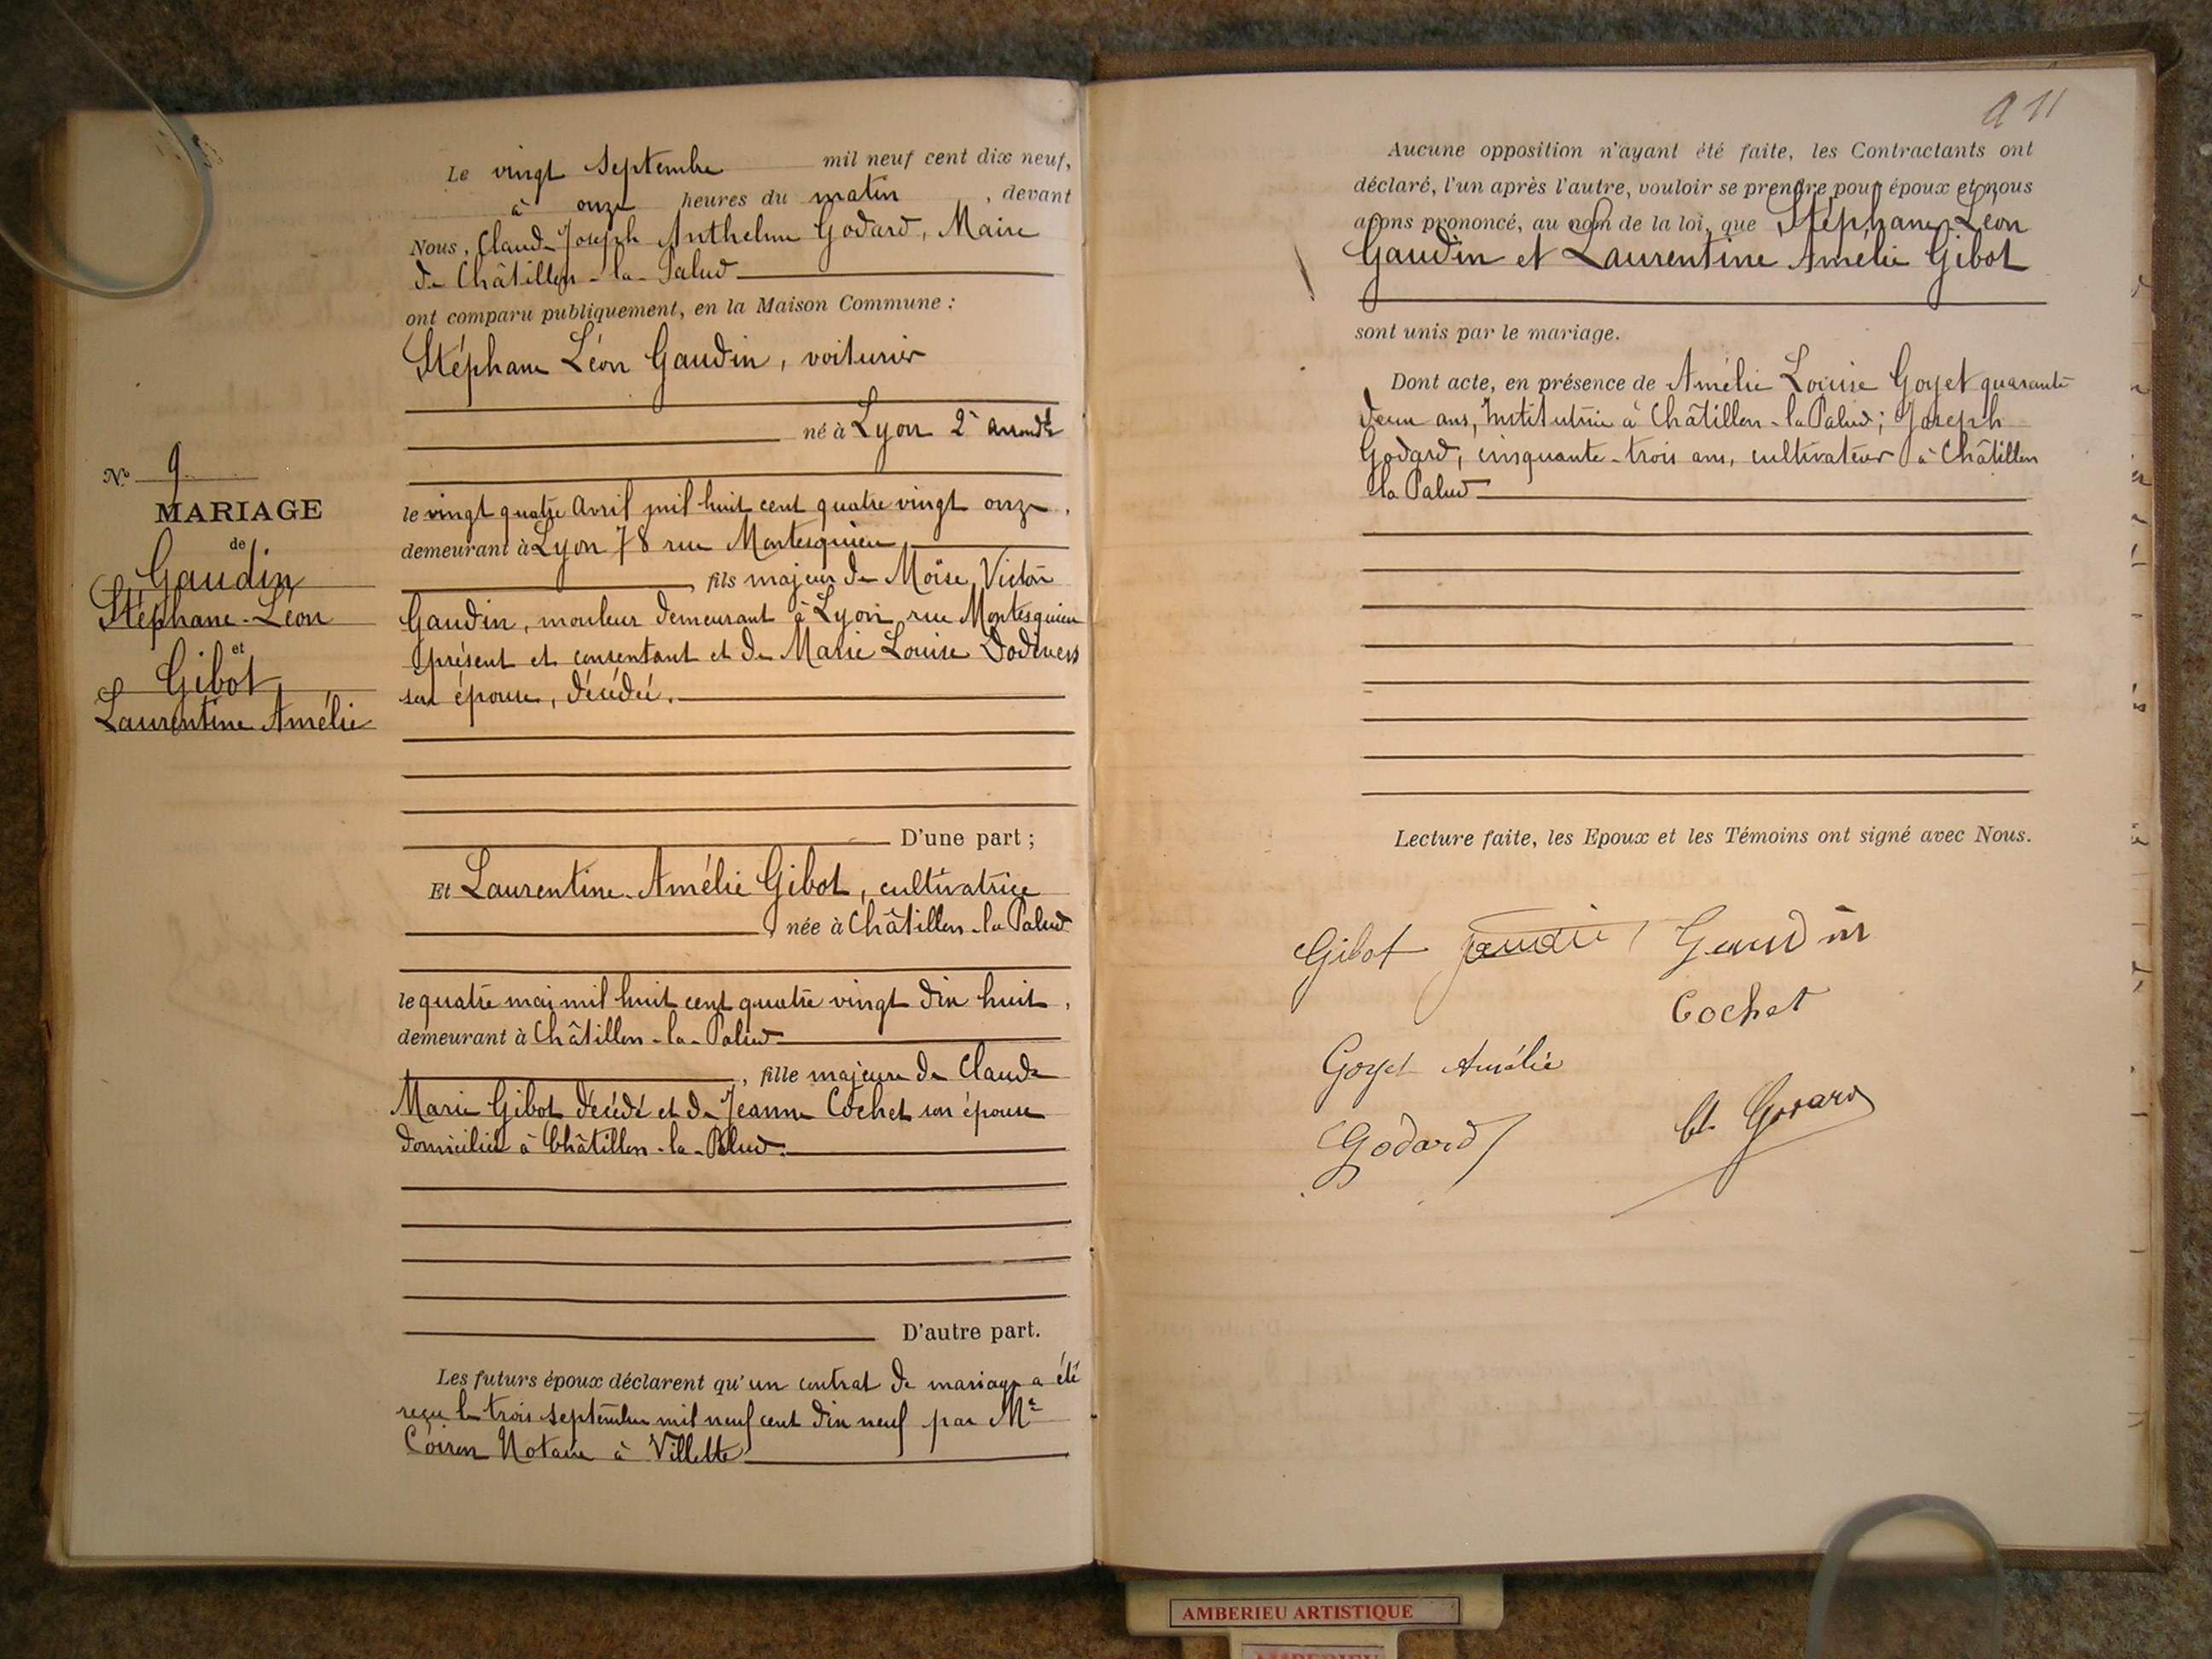 Le vingt septembre mil neuf cent dix neuf,
à onze heures du matin, devant
Nous, Claude Joseph Anthelme Godard, Maire
de Châtillon-la-Palud
ont comparu publiquement, en la Maison Commune :
Stéphane Léon Gaudin, voiturier
né à Lyon 2e arrondt
le vingt quatre avril mil huit cent quatre vingt onze,
demeurant à Lyon 78 rue Montesquieu
, fils majeur de Moïse Victor
Gaudin, mouleur demeurant à Lyon, rue Montesquieu
présent et consentant et de Marie Louise
son épouse, décédée.
D'une part ;
N° 9
MARIAGE
de
Gaudin
Stéphane-Léon
et
Gibot
Laurentine Amélie
Et Laurentine-Amélie Gibot, cultivatrice
, née à Châtillon-la-Palud
le quatre mai mil huit cent quatre vingt dix huit,
demeurant à Châtillon-la-Palud
, fille majeure de Claude
Marie Gibot décédé et de Jeanne Cochet son épouse
domiciliée à Châtillon-la-Palud.
D'autre part.
Les futurs époux déclarent qu'un contrat de mariage a été
reçu le trois septembre mil neuf cent dix neuf par Me
Coiron Notaire à Villette
11
Aucune opposition n'ayant été faite, les Contractants ont
déclaré, l'un après l'autre, vouloir se prendre pour époux et nous
avons prononcé, au nom de la loi, que Stéphane-Léon
Gaudin et Laurentine Amélie Gibot
sont unis par le mariage.
Dont acte, en présence de Amélie Louise Goyet quarante
deux ans, Institutrice à Châtillon-la Palud; Joseph
Godard, cinquante-trois ans, cultivateur à Châtillon
la Palud
Lecture faite, les Epoux et les Témoins ont signé avec Nous.
Gibot Gaudin Gaudin
Cochet
Goyet Amélie
Godard
Cl. Godard
AMBERIEU ARTISTIQUE
AMBERIEU